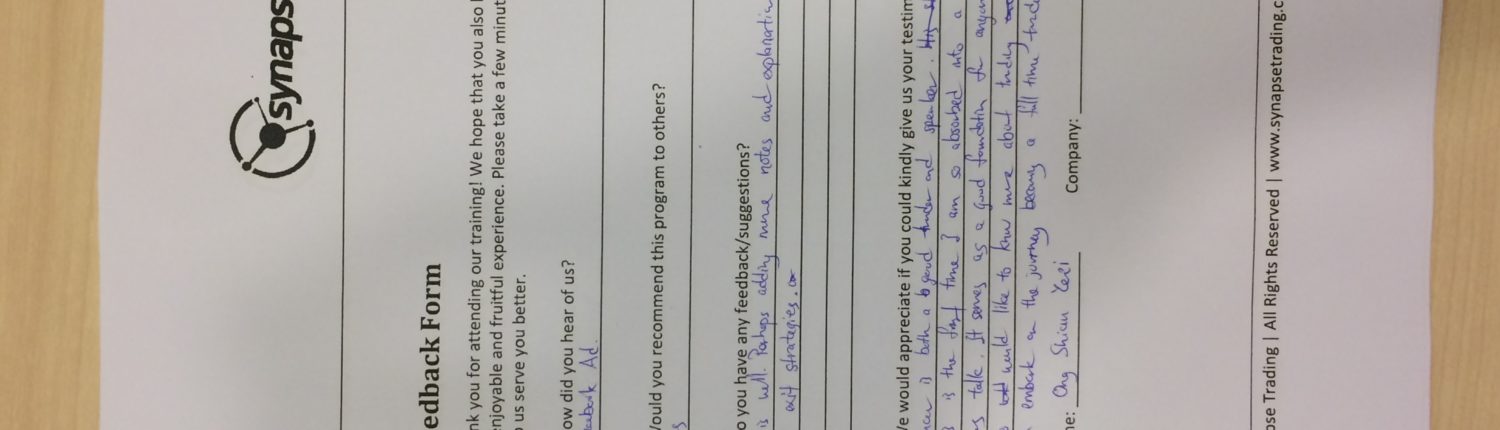 synaps
edback Form
nk you for attending our training! We hope that you also
enjoyable and fruitful experience. Please take a few minut
o us serve you better.
ow did you hear of us?
Ad.
Would you recommend this program to others?
s
o you have any feedback/suggestions?
is well. Perhaps adding more notes and explanation
exit strategies.
We would appreciate if you could kindly give us your testim
is both a good trader and speaker.
is the first time I am so absorbed into a
talk. It serves as a good foundation for anyon
would like to know more about trading
embark on the journey becoming a full time trade
me: Ong Shien Company:
pse Trading | All Rights Reserved | www.synapsetrading.c